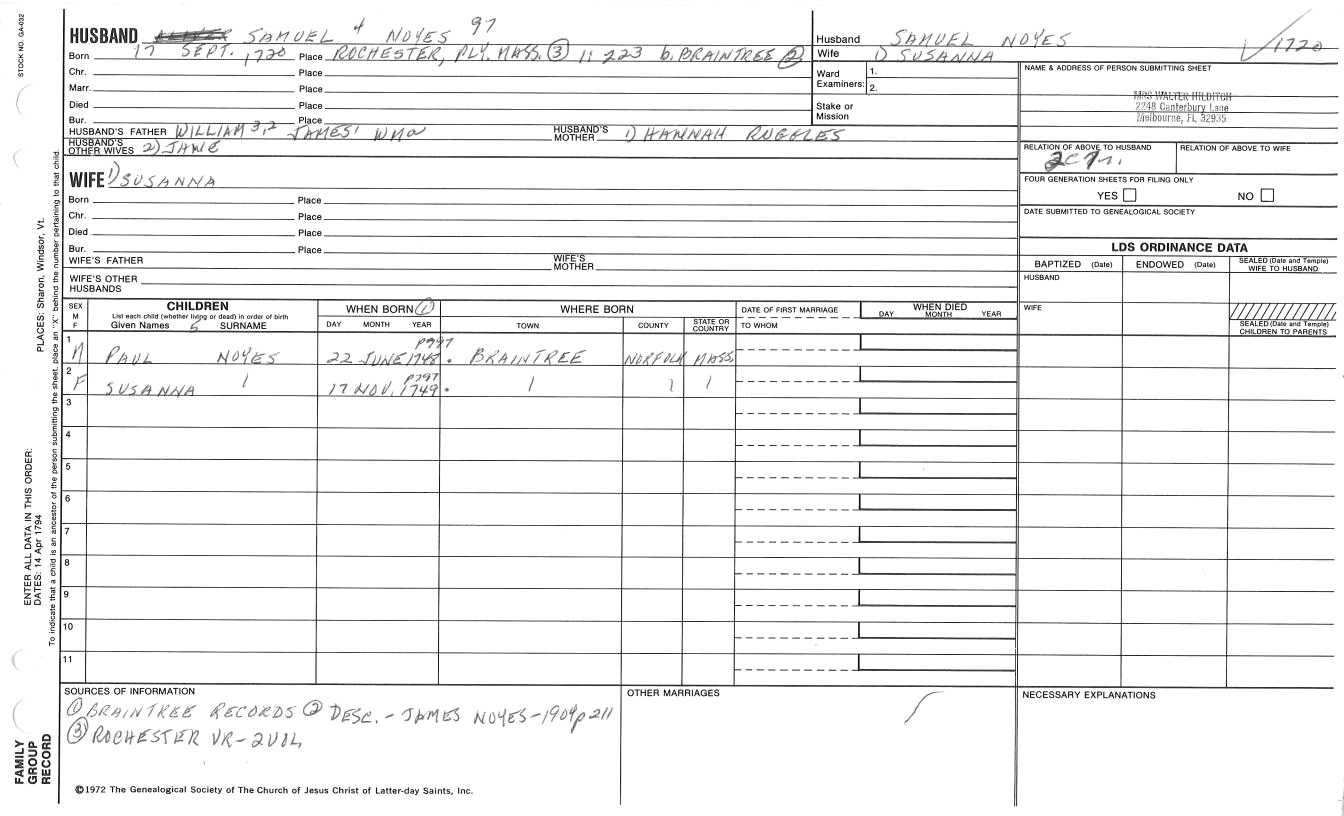 STOCK NO. GA-032
HUSBAND SAMUEL 4 NOYES 97
Born 17 SEPT. 1720 Place ROCHESTER, PLY. MASS. ③ 1: 223 b. BRAINTREE ②
Chr. Place
Marr. Place
Died Place
Bur. Place
HUSBAND'S FATHER WILLIAM 3,2 JAMES' WMa HUSBAND'S MOTHER 1) HANNAH RUGGLES
HUSBAND'S OTHER WIVES 2) JANE
Husband SAMUEL NOYES
Wife 1) SUSANNA
1720
Ward Examiners: 1. 2.
Stake or Mission
NAME & ADDRESS OF PERSON SUBMITTING SHEET
MRS WALTER HILDITCH
2248 Canterbury Lane
Melbourne, FL 32935
RELATION OF ABOVE TO HUSBAND RELATION OF ABOVE TO WIFE
FOUR GENERATION SHEETS FOR FILING ONLY
YES NO
DATE SUBMITTED TO GENEALOGICAL SOCIETY
WIFE 1) SUSANNA
Born Place
Chr. Place
Died Place
Bur. Place
WIFE'S FATHER WIFE'S MOTHER
WIFE'S OTHER HUSBANDS
LDS ORDINANCE DATA
BAPTIZED (Date) ENDOWED (Date) SEALED (Date and Temple) WIFE TO HUSBAND
HUSBAND
WIFE
SEALED (Date and Temple) CHILDREN TO PARENTS
SEX M F
CHILDREN
List each child (whether living or dead) in order of birth
Given Names 5 SURNAME
WHEN BORN ①
DAY MONTH YEAR
WHERE BORN
TOWN COUNTY STATE OR COUNTRY
DATE OF FIRST MARRIAGE
TO WHOM
WHEN DIED
DAY MONTH YEAR
1 M PAUL NOYES 22 JUNE 1748. p797 BRAINTREE NORFOLK MASS.
2 F SUSANNA 1 17 NOV. 1749. p797 1 1 1
3
4
5
6
7
8
9
10
11
SOURCES OF INFORMATION
① BRAINTREE RECORDS ② DESC. - JAMES NOYES - 1904 p 211
③ ROCHESTER VR - 2 VOL
OTHER MARRIAGES
NECESSARY EXPLANATIONS
©1972 The Genealogical Society of The Church of Jesus Christ of Latter-day Saints, Inc.
FAMILY GROUP RECORD
ENTER ALL DATA IN THIS ORDER:
DATES: 14 Apr 1794
PLACES: Sharon, Windsor, Vt.
To indicate that a child is an ancestor of the person submitting the sheet, place an "X" behind the number pertaining to that child.